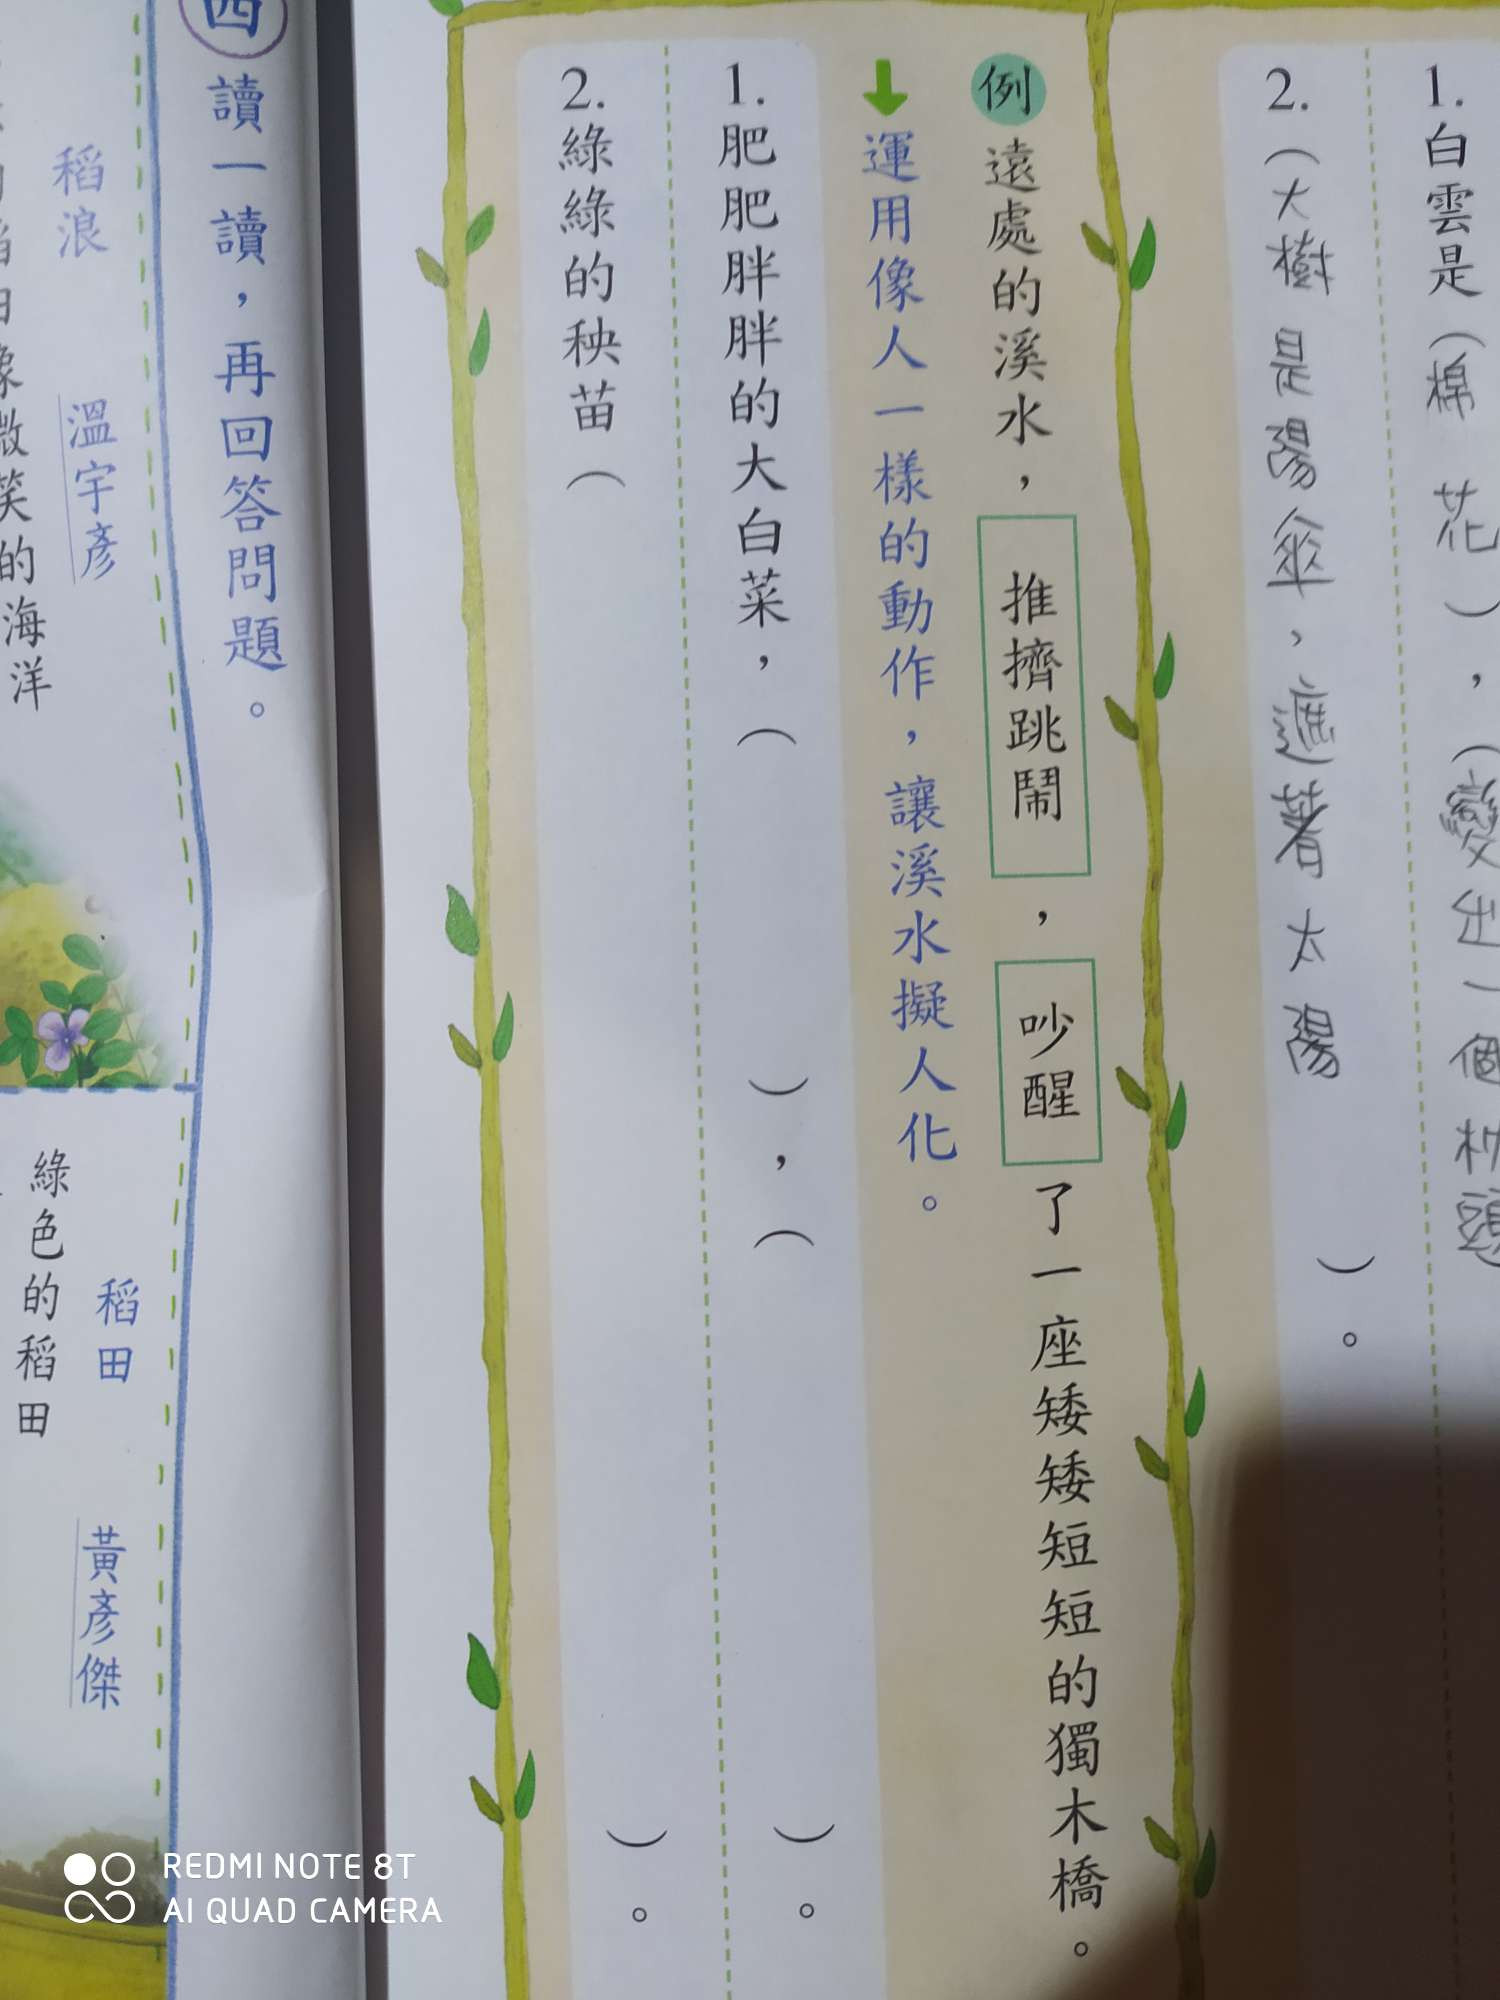 1.白雲是(棉花),(變出一個枕頭
2.(大樹是陽傘,遮著太陽)。
例遠處的溪水,推擠跳鬧,吵醒了一座矮矮短短的獨木橋。
運用像人一樣的動作,讓溪水擬人化。
1.肥肥胖胖的大白菜,( ),( )。
2.綠綠的秧苗( )。
四讀一讀,再回答問題。
稻浪 溫宇彥
像微笑的海洋
稻田 黃彥傑
綠色的稻田
REDMI NOTE 8T
AI QUAD CAMERA